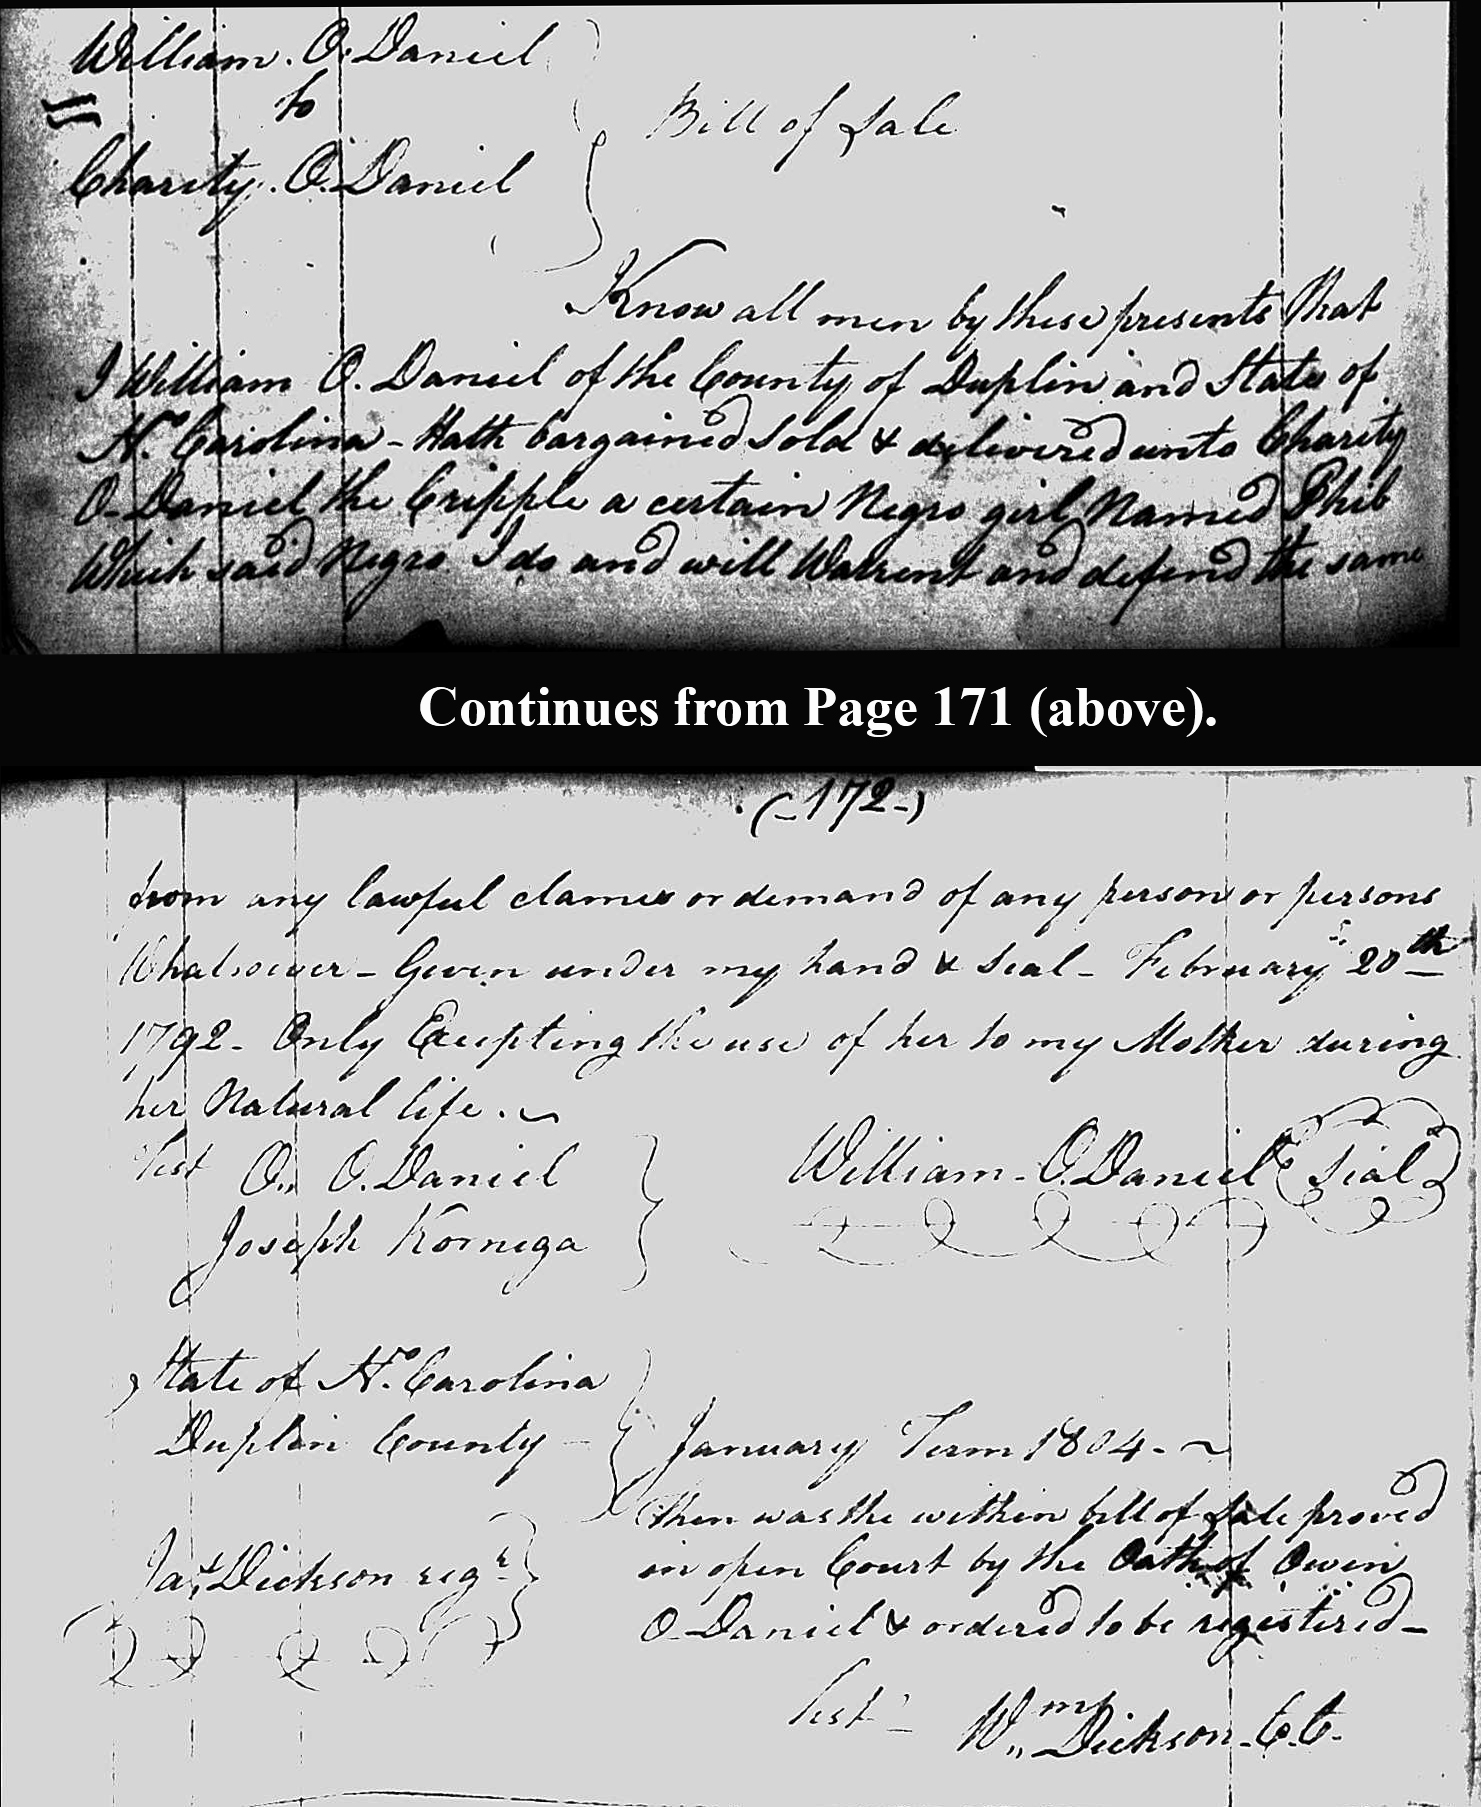 William. O. Daniel
to
Charity. O. Daniel
Bill of Sale
Know all men by these presents that
I William O. Daniel of the County of Duplin and State of
No. Carolina - Hath bargained Sold & delivered unto Charity
O-Daniel the Cripple a certain Negro girl Named Phib
Which said Negro I do and will Warrent and defend the same
Continues from Page 171 (above).
(-172-)
from any lawful clames or demand of any person or persons
Whatsoever - Given under my hand & Seal - February 20th
1792 - Only Excepting the use of her to my Mother during
her Natural life.
Test O.. O. Daniel
Joseph Kornega
William - O. Daniel Seal
State of No. Carolina
Duplin County -
January Term 1804 -
Then was the within bill of Sale proved
in open Court by the Oath of Owin
O-Daniel & ordered to be registered -
Jas. Dickson regr
Test -
Wm Dickson - C.C.